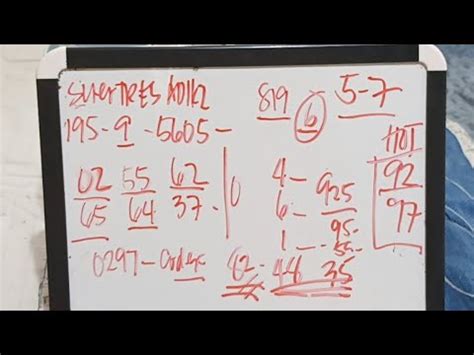 195-9-5605-
819 6 5-7
HOT
02 55 62
65 64 37-
0
4- 925
6- 95-
1- 55-
92
97
0297-
82- 48 35